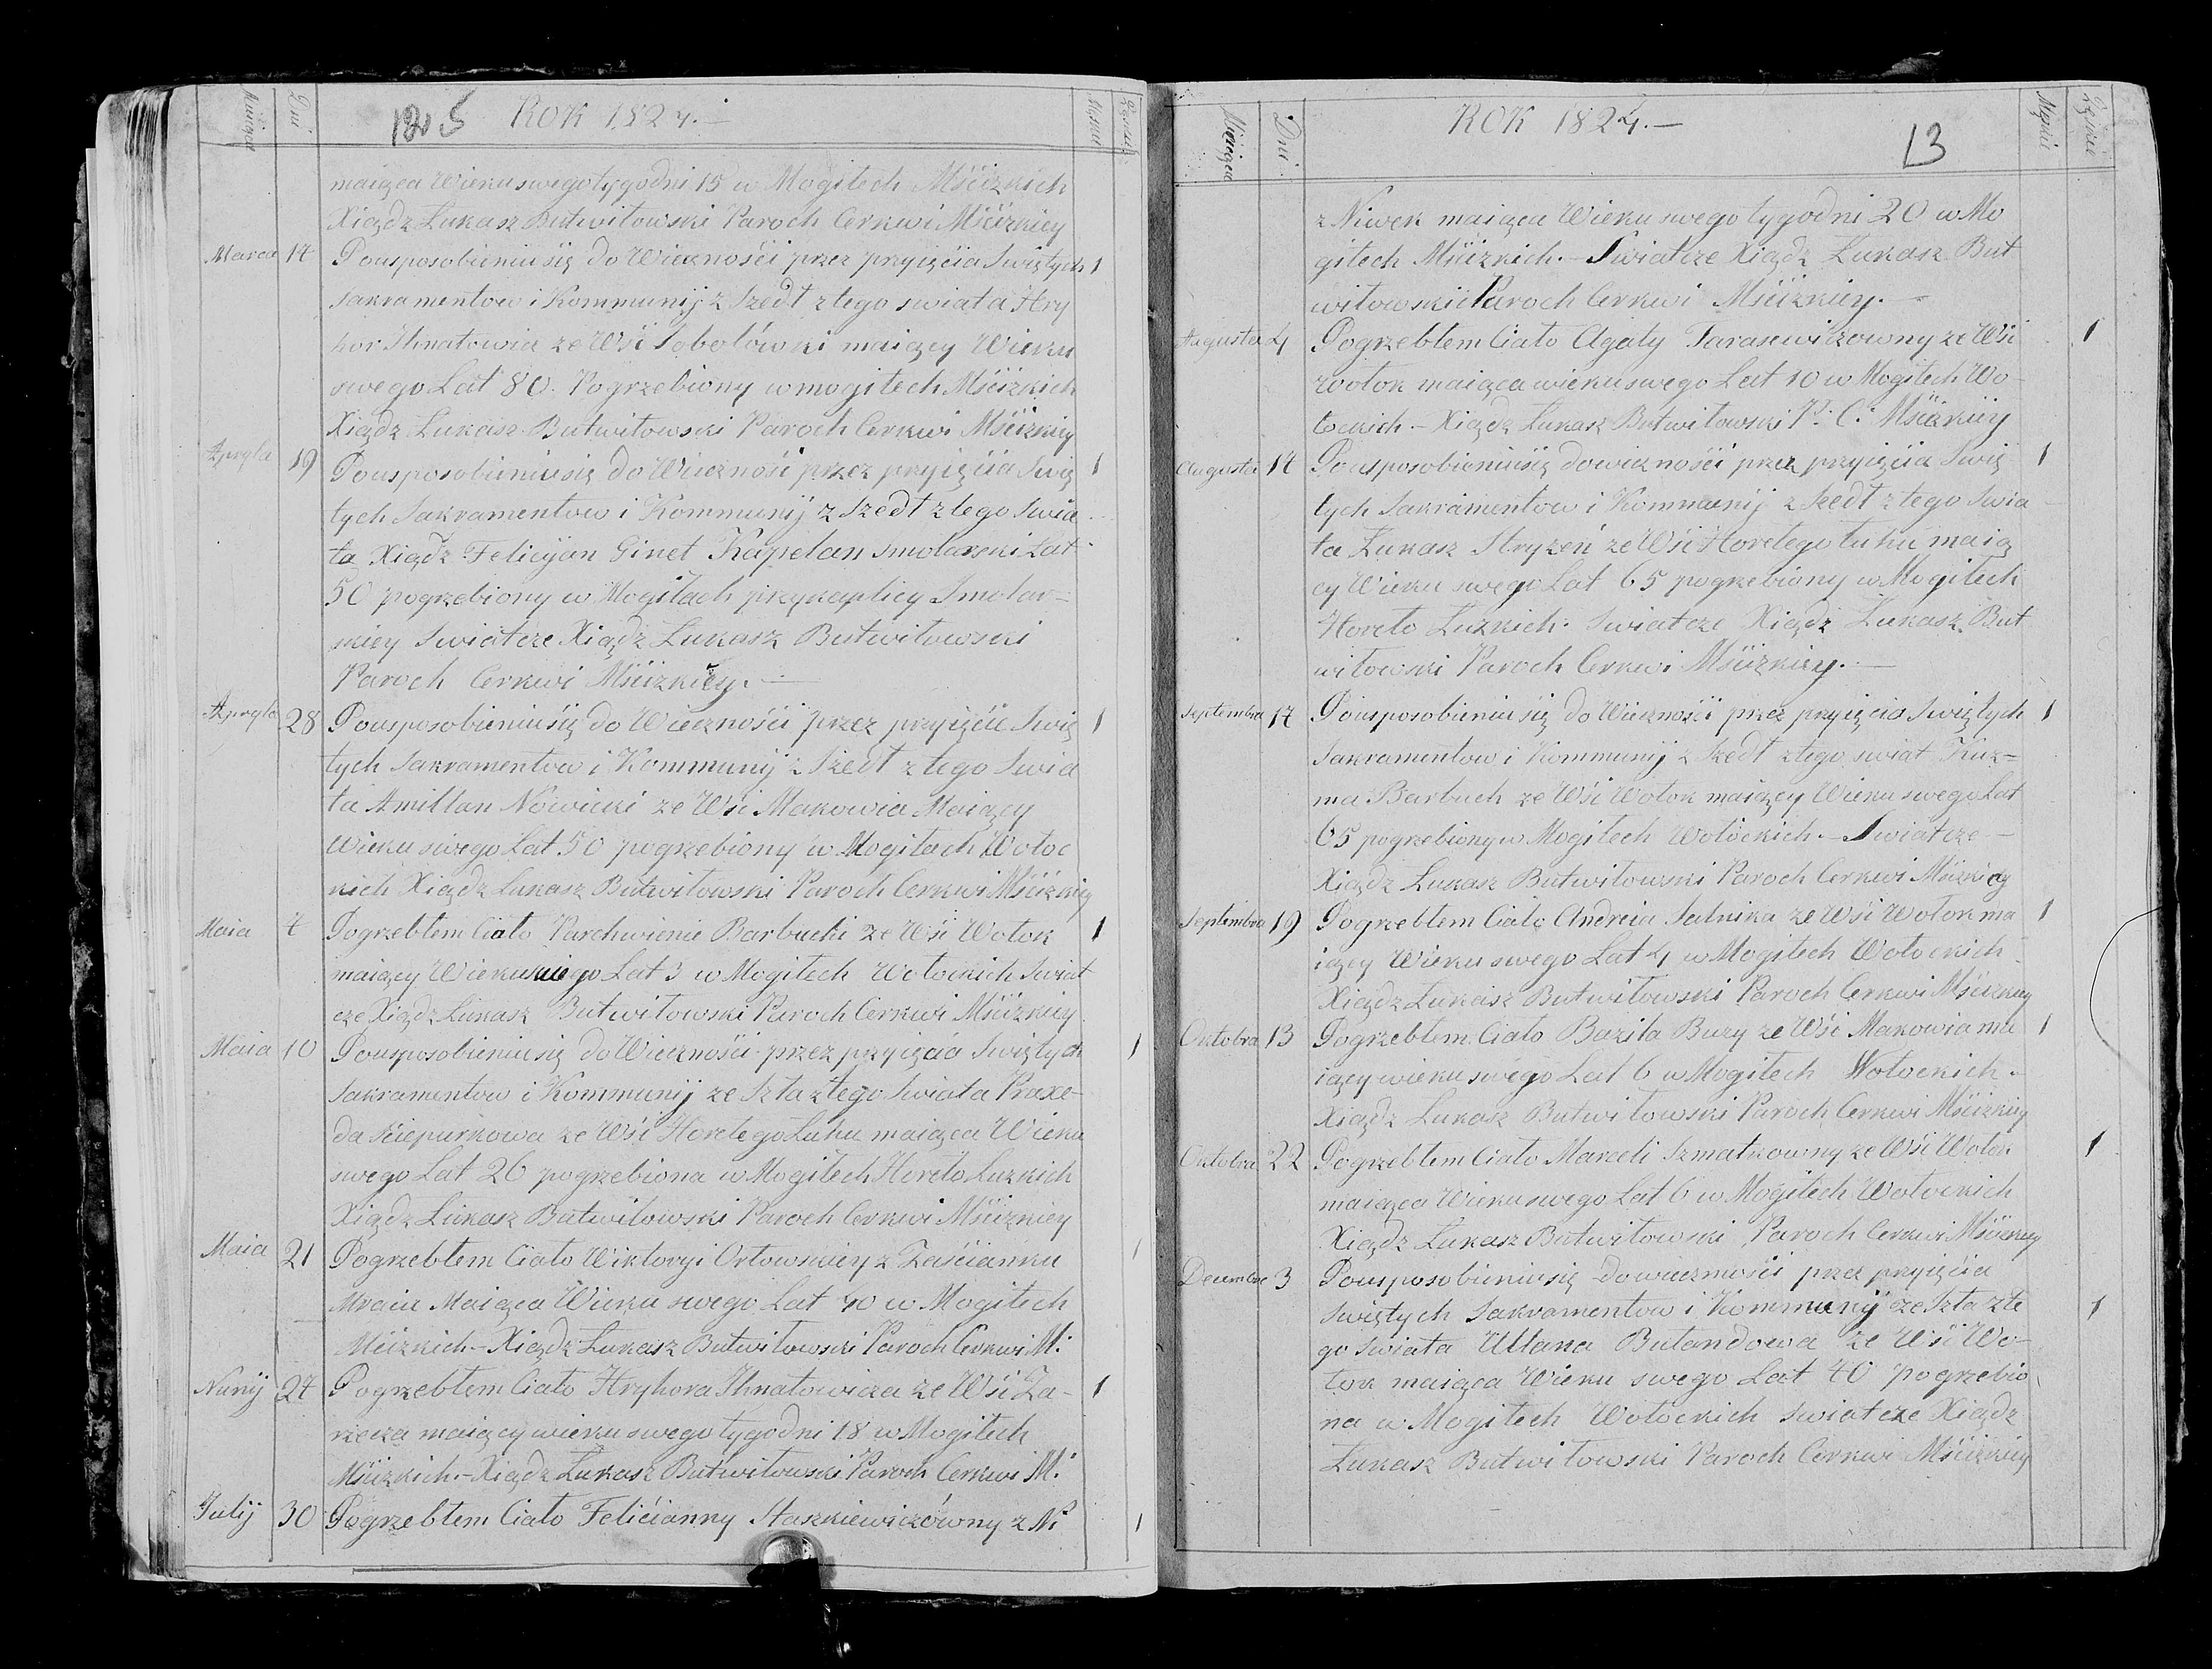 Miesiąca Dni ROK 1824.— Męskie Żęskie
maiąca Wieku swego tygodni 15 w Mogiłech Mściżkich
Xiądz Łukasz Butwiłowski Paroch Cerkwi Mściżkiey
Marca 17 Po usposobieniu się do Wieczności przez pryięcia Swiętych 1
Sakramentow i Kommunij z Szedł z tego swiata Hry
hor Ihnatowicz ze Wśi Sobolówki maiący Wieku
swego Lat 80. Pogrzebiony w mogiłech Mściżkich
Xiądz Łukasz Butwiłowski Paroch Cerkwi Mściżkiey
Apryla 19 Po usposobieniu się do Wieczności przez pryięcia Swię 1
tych Sakramentow i Kommunij z Szedł z tego Swia
ta Xiądz Felicyan Ginet Kapelan Smolarski Lat
50 pogrzebiony w Mogiłach przy kaplicy Smolar=
skiey Swiatcze Xiądz Łukasz Butwiłowski
Paroch Cerkwi Mściżkiey.—
Apryla 28 Po usposobieniu się do Wieczności przez pryięcie Swię 1
tych Sakramentow i Kommunij z Szedł z tego Swia
ta Amillan Nowicki ze Wśi Makowia Maiący
Wieku swego Lat 50 pogrzebiony w Mogiłach Wołoc
kich Xiądz Łukasz Butwiłowski Paroch Cerkwi Mściżkiey
Maia 7 Pogrzebłem Ciało Parchwienia Barbucki ze Wśi Wołok 1
maiący Wieku swego Lat 3 w Mogiłech Wołockich Swiat
cze Xiądz Łukasz Butwiłowski Paroch Cerkwi Mściżkiey
Maia 10 Po usposobieniu się do Wieczności przez pryięcia Swiętych 1
Sakramentow i Kommunij ze Szła z tego Swiata Praxe-
da Sciepurkowa ze Wśi Horełego Łuhu maiąca Wieku
swego Lat 26 pogrzebiona w Mogiłech Horeło Łuzkich
Xiądz Łukasz Butwiłowski Paroch Cerkwi Mściżkiey
Maia 21 Pogrzebłem Ciało Wiktoryi Orłowskiey z Zaścianku 1
Maiąca Wieku swego Lat 40 w Mogiłech
Mściżkich – Xiądz Łukasz Butwiłowski Paroch Cerkwi M:
Nunij 27 Pogrzebłem Ciało Hryhora Ihnatowicza ze Wśi Za- 1
rzecza maiący wieku swego tygodni 18 w Mogiłech
Mściżkich.– Xiądz Łukasz Butwiłowski Paroch Cerkwi M:
Julij 30 Pogrzebłem Ciało Felicianny Staszkiewiczówny z Ni 1
Miesiąca Dni ROK 1824.— 13 Męskie Żęskie
z Niwek maiąca Wieku swego tygodni 20 w Mo
giłech Mściżkich.– Swiatcze Xiądz Łukasz But
wiłowski Paroch Cerkwi Mściżkiey.–
Augusta 4 Pogrzebłem Ciało Agaty Tarasewiczowny ze Wśi 1
Wołok maiąca wieku swego Lat 10 w Mogiłech Wo-
łockich.– Xiądz Łukasz Butwiłowski P: C: Mściżkiey
Augusta 17 Po usposobieniu się do wieczności przez pryięcia Swię 1
tych Sakramentow i Kommunij z Szedł z tego Swia
ta Łukasz Stryżeń ze Wśi Horełego Łuhu maią
cy Wieku swego Lat 65 pogrzebiony w Mogiłech
Horeło Łuzkich. Swiatcze Xiądz Łukasz But
wiłowski Paroch Cerkwi Mściżkiey.—
Septembra 17 Po usposobieniu się do Wieczności przez pryięcia Swiętych 1
Sakramentow i Kommunij z Szedł z tego swiat Kuz=
ma Barbuch ze Wśi Wołok maiący Wieku swego Lat
65 pogrzebiony w Mogiłech Wołockich.– Swiatcze –
Xiądz Łukasz Butwiłowski Paroch Cerkwi Mściżkiey
Septembra 19 Pogrzebłem Ciało Andreia Salnika ze Wśi Wołok ma 1
iący Wieku swego Lat 4 w Mogiłech Wołockich
Xiądz Łukasz Butwiłowski Paroch Cerkwi Mściżkiey
Oktobra 13 Pogrzebłem Ciało Bazila Bury ze Wśi Makowia ma 1
iący wieku swego Lat 6 w Mogiłech Wołockich.
Xiądz Łukasz Butwiłowski Paroch Cerkwi Mściżkiey
Oktobra 22 Pogrzebłem Ciało Marceli Szmatkowny ze Wśi Wołok 1
maiąca Wieku swego Lat 6 w Mogiłech Wołockich
Xiądz Łukasz Butwiłowski Paroch Cerkwi Mściżkiey
Decembra 3 Po usposobieniu się do wieczności przez pryięcia
Swiętych Sakramentow i Kommunij ze Szła z te 1
go Swiata Ullana Bulandowa ze Wśi Wo-
łok maiąca Wieku swego Lat 40 pogrzebio
na w Mogiłech Wołockich swiatcze Xiądz
Łukasz Butwiłowski Paroch Cerkwi Mściżkiey